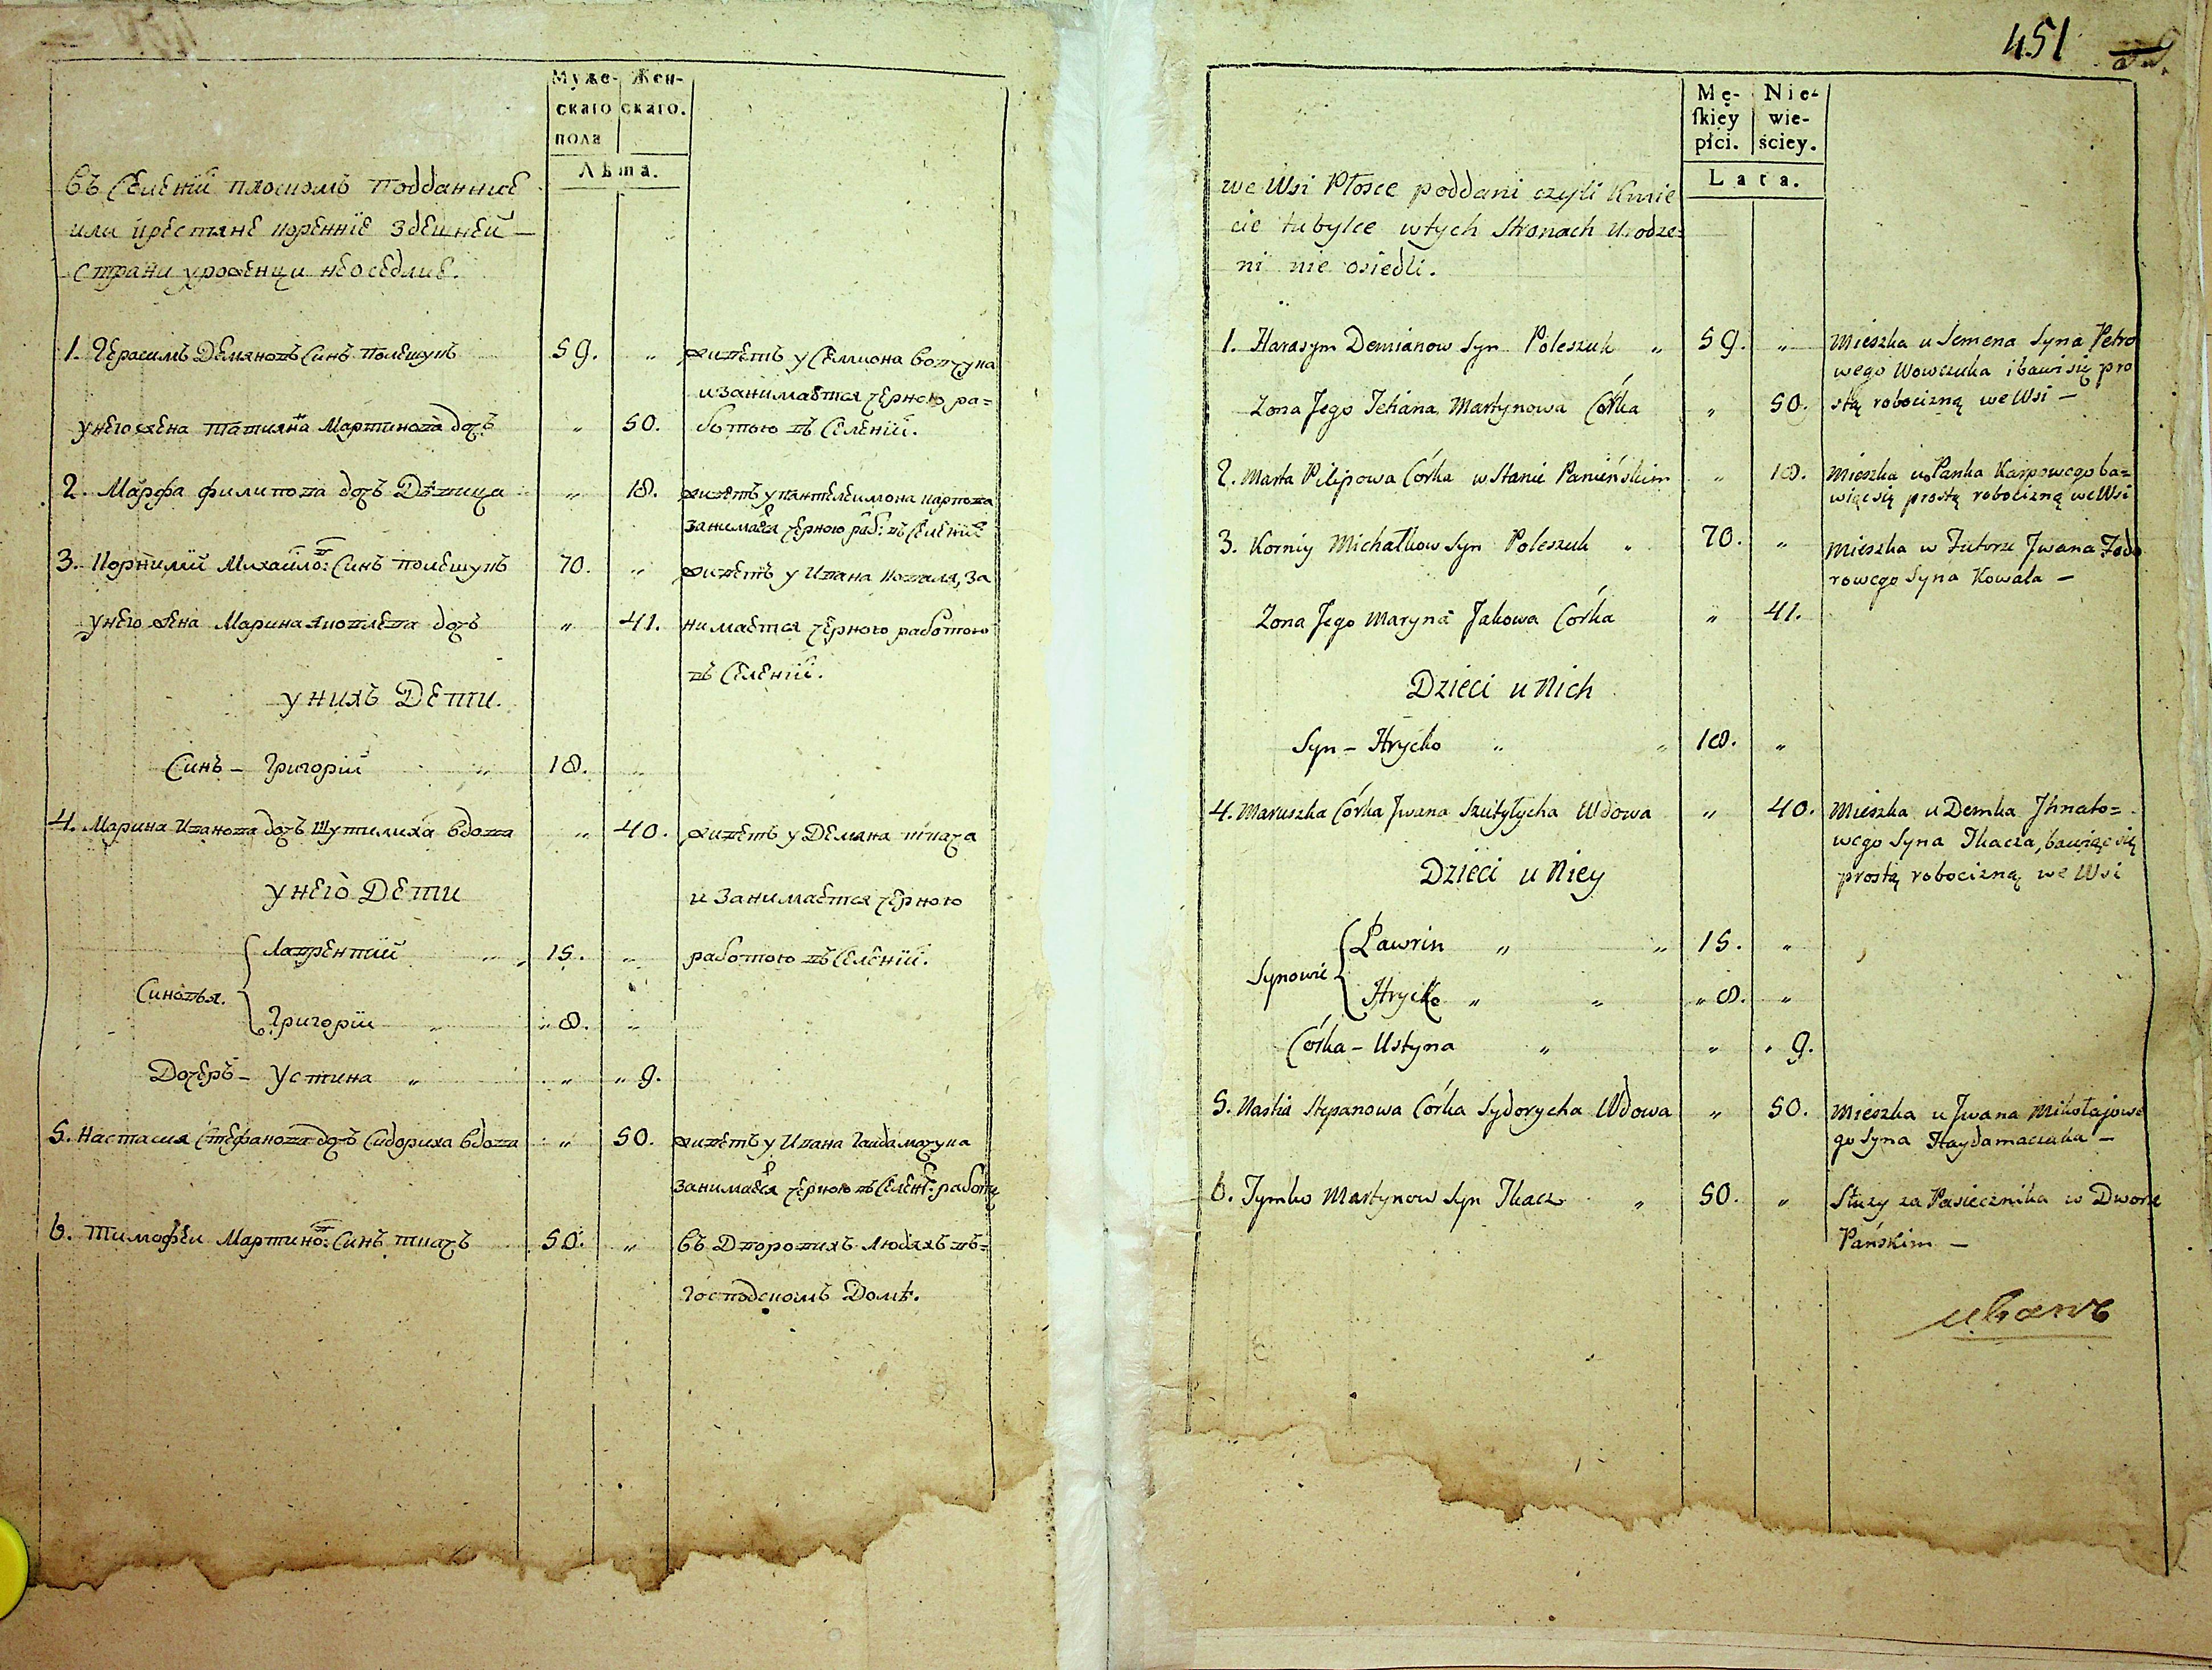 Муже- Жен-
скаго скаго.
пола
Лѣта.
въ Селенїи плоскомъ подданние
или крестяне коренніе здешней —
страни уроженци неоседлие.
1. Герасимъ Демяновъ Синъ полещукъ 59. „ живетъ у Семиона вовчука
и занимается черною ра=
у него жена татияна Мартинова дочъ „ 50. ботою въ Селенїи.
2. Марфа филипова дочъ Дѣвица „ 18. живетъ у пантелеимона карпова
занимается черною раб: въ Селенїе
3. Корнилий Михайло:в Синъ полещукъ 70. „ живетъ у Ивана коваля, за
у него жена Марина яковлева дочъ „ 41. нимается черною работою
въ Селенїи.
у нихъ Дети.
Синъ – Григорїй „ 18. „
4. Марина Иванова дочъ Шутилиха вдова „ 40. живетъ у Демяна ткача
у него Дети и занимается черною
Лаврентїй „ 15. „ работою въ Селенїи.
Синовья.
Григорїи „ „ 8. „
Дочеръ – Устина „ „ „ 9.
5. Настасия Стефанова дочъ Сидориха вдова „ 50. живетъ у Ивана гайдамачука
занимается черною въ Селенѣ: работу
6. тимофѣи Мартино:в Синъ ткачъ 50. „ въ Дворовихъ Людяхъ въ=
господскомъ Домѣ.
451
Mę- Nie-
skiey wie-
płci. ściey.
Lata.
we Wsi Płosce poddani czyli Kmie
cie tubylce w tych Stronach Urodze=
ni nie osiedli.
1. Harasym Demianow Syn Poleszuk „ 59. „ Mieszka u Semena Syna Petro
wego Wowczuka i bawi się pro
Zona Jego Tetiana Martynowa Córka „ 50. stą robocizną we Wsi –
2. Marta Pilipowa Córka w Stanie Panieńskim „ 18. Mieszka u Panka Karpowego ba=
wiąc się prostą robocizną we Wsi
3. Korniy Michałkow Syn Poleszuk „ 70. „ Mieszka w Futorze Jwana Fedo
rowego Syna Kowala –
Zona Jego Maryna Jakowa Córka „ 41.
Dzieci u Nich
Syn – Hrycko „ „ 18. „
4. Maruszka Córka Jwana Szutyłycha Wdowa „ 40. Mieszka u Demka Jhnato=
wego Syna Tkacza, bawiąc się
Dzieci u Niey prostą robocizną we Wsi
Ławrin „ „ 15. „
Synowie
Hrycko „ „ „ 8. „
Córka – Ustyna „ „ „ 9.
5. Nastia Stepanowa Córka Sydorycha Wdowa „ 50. Mieszka u Jwana Mikołajowe
go Syna Haydamaczuka –
6. Tymko Martynow Syn Tkacz „ 50. „ Służy za Pasiecznika w Dworze
Pańskim –